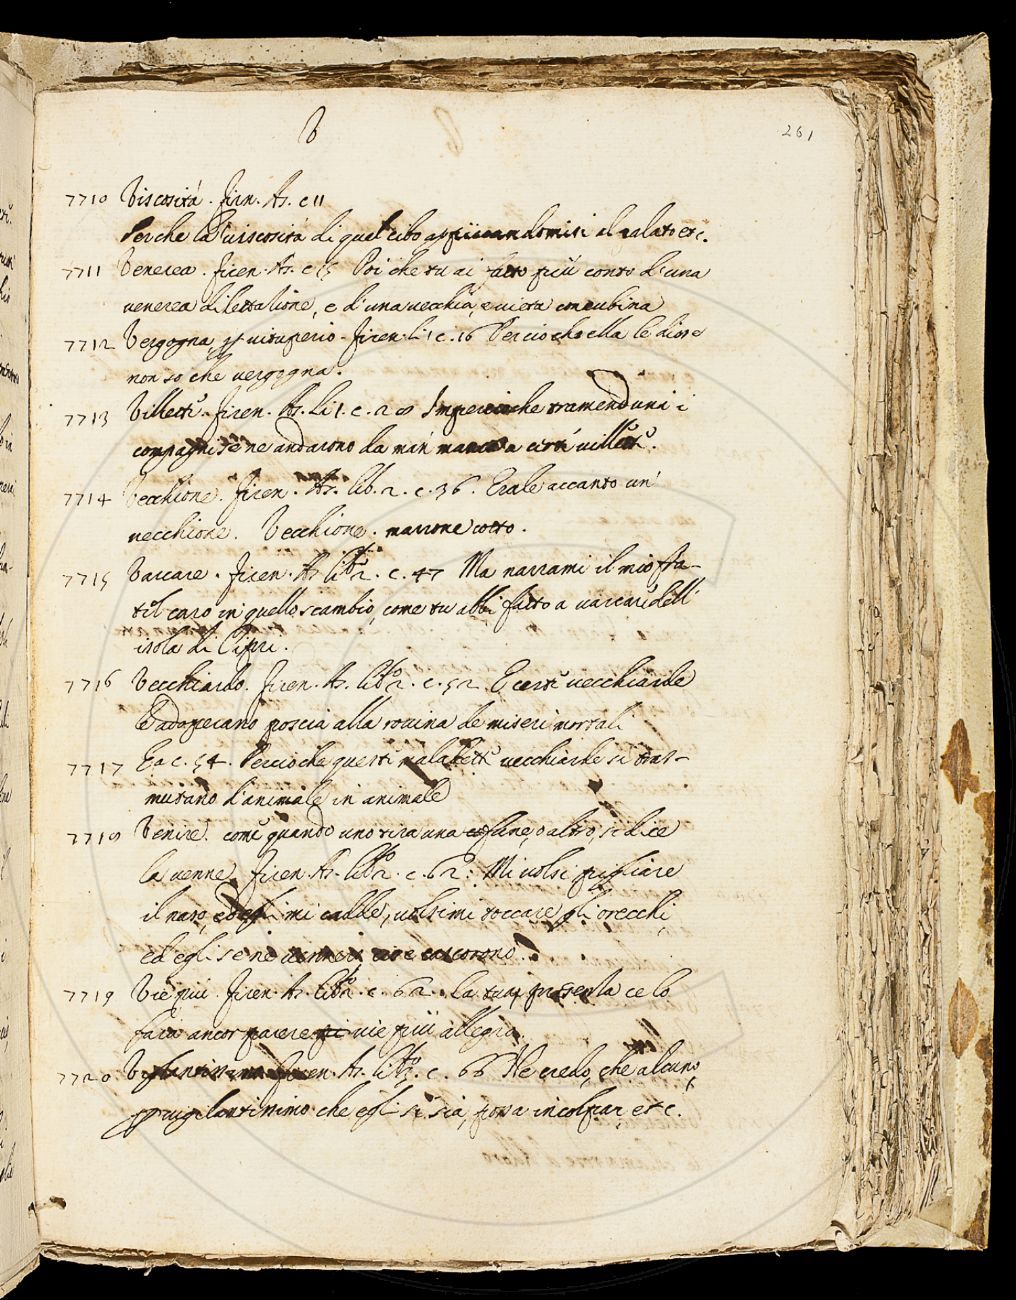 V
261
7710 Viscosità. Firen. As. c 11
Perche la viscosità di quel cibo appiccandomisi al palato etc.
7711 Venerea. Firen. As. c 15 Poi che tu ai fatto più conto d'una
venerea dilettatione, e d'una vecchia, e vieta concubina
7712 Vergogna, p vituperio. Firen. Li 1 c. 16 Percioch'ella le disse
non so che vergogna.
7713 Villetti. Firen. As. Li 1. c. 28 Imperciòche tramenduni i
compagni se ne andarono da man manca a certi villetti.
7714 Vecchione. Firen. As. lib. 2. c. 36. Erale accanto un'
vecchione. Vecchione. marrone cotto.
7715 Varcare. Firen. As libº 2. c. 47 Ma narrami il mio fra-
til caro in quello scambio, come tu abbi fatto a varcar dell'
isola di Cipri.
7716 Vecchiardo. Firen. As. libº 2. c. 52. E certe vecchiarde
s'adoperano poscia alla rovina de miseri mortali
7717 E a c. 54. Percioche queste maladette vecchiarde si tras-
mutano d'animale in animale
7718 Venire. come quando uno tira una fune, o altro, si dice
la venne. Firen. As. libº 2. c. 62. Mi volsi pigliare
il naso, ed egli mi cadde, volsimi toccare gli orecchi,
ed egli se ne cascorono.
7719 Vie più. Firen. As. libº 2. c. 62. La tua presenza ce lo
farà ancor parere vie più allegro,
7720 Vigilantissimo Firen. As. libº 3. c. 66 Ne credo, che alcuno,
p vigilantissimo che egli si sia, possa incolpar, etc.